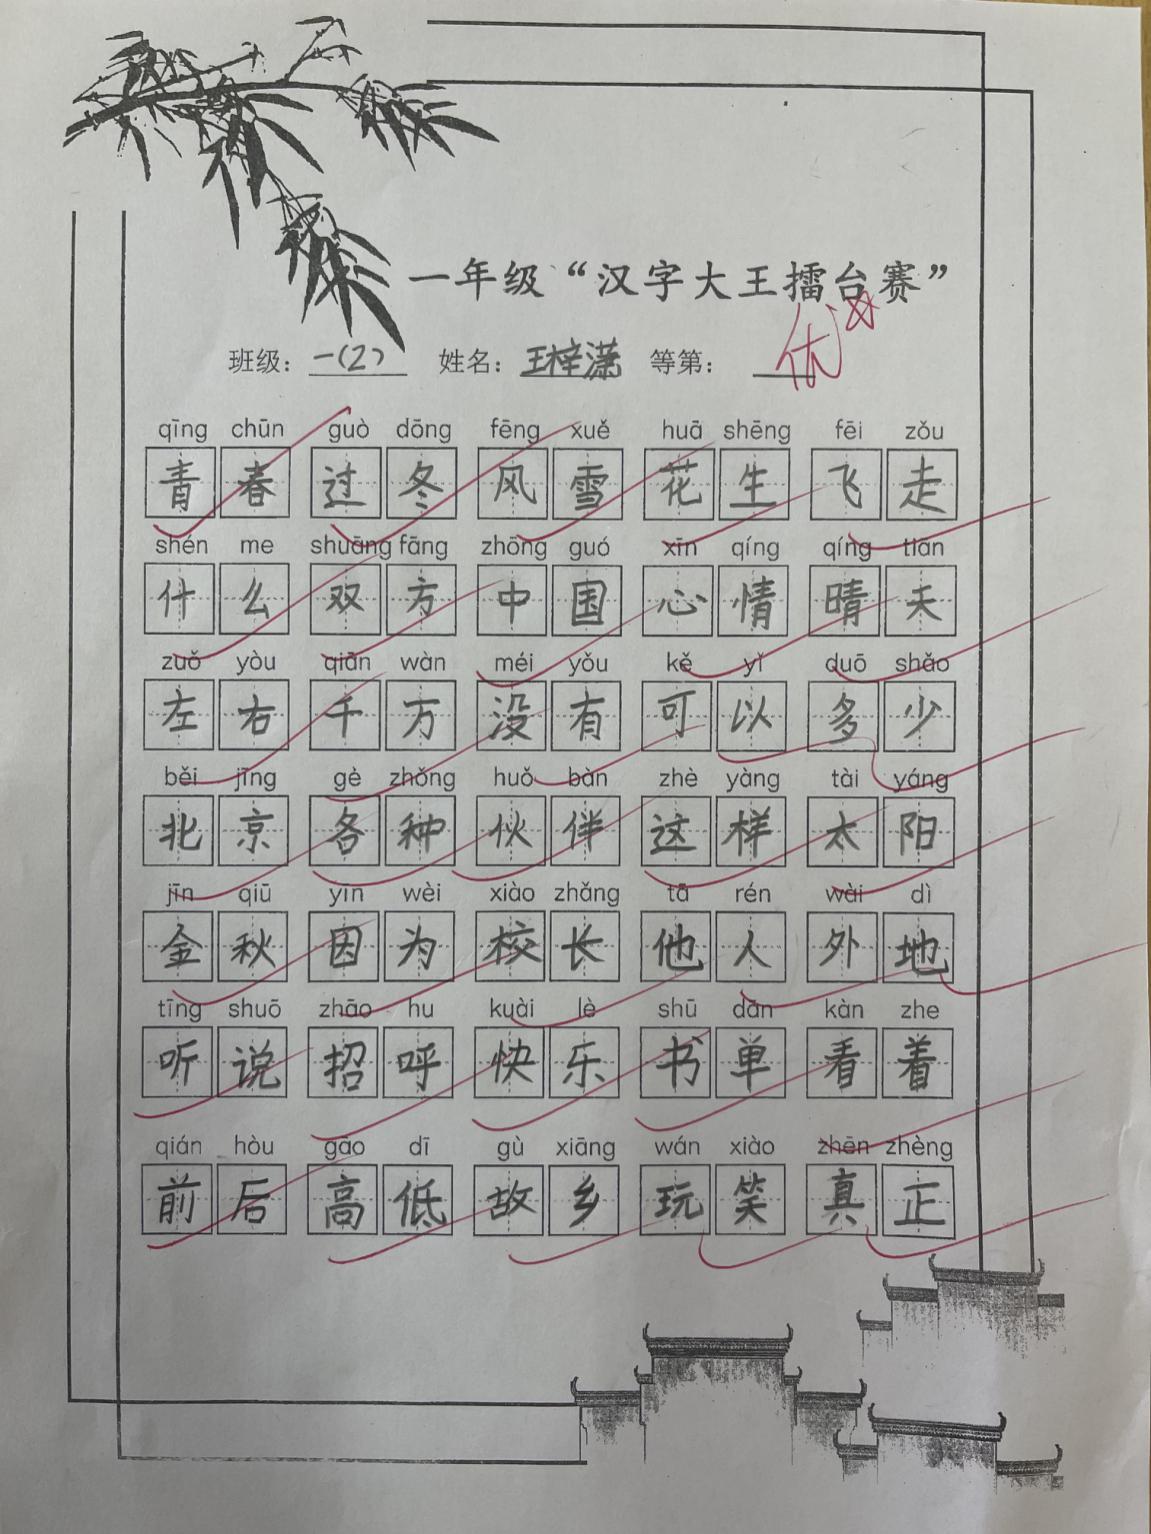 一年级“汉字大王擂台赛”
班级：一(2) 姓名：王梓潇 等第：优
qīng chūn guò dōng fēng xuě huā shēng fēi zǒu
青春 过冬 风雪 花生 飞走
shén me shuāng fāng zhōng guó xīn qíng qíng tiān
什么 双方 中国 心情 晴天
zuǒ yòu qiān wàn méi yǒu kě yǐ duō shǎo
左右 千万 没有 可以 多少
běi jīng gè zhǒng huǒ bàn zhè yàng tài yáng
北京 各种 伙伴 这样 太阳
jīn qiū yīn wèi xiào zhǎng tā rén wài dì
金秋 因为 校长 他人 外地
tīng shuō zhāo hu kuài lè shū dān kàn zhe
听说 招呼 快乐 书单 看着
qián hòu gāo dī gù xiāng wán xiào zhēn zhèng
前后 高低 故乡 玩笑 真正